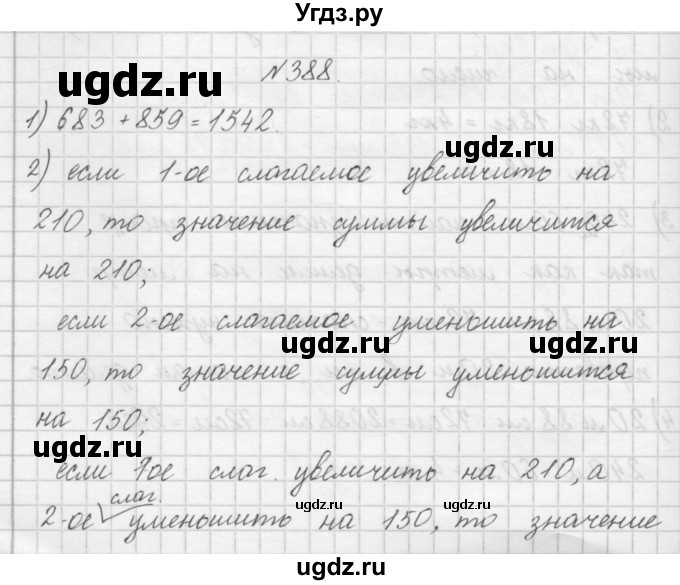 Угдз.ру
№388.
1) 683 + 859 = 1542.
2) если 1-ое слагаемое увеличить на
210, то значение суммы увеличится
на 210;
если 2-ое слагаемое уменьшить на
150, то значение суммы уменьшится
на 150;
если 1ое слаг. увеличить на 210, а
слаг.
2-ое уменьшить на 150, то значение
ugdz.ru
ugdz.ru
ugdz.ru
ugdz.ru
ugdz.ru
ugdz.ru
ugdz.ru
ugdz.ru
ugdz.ru